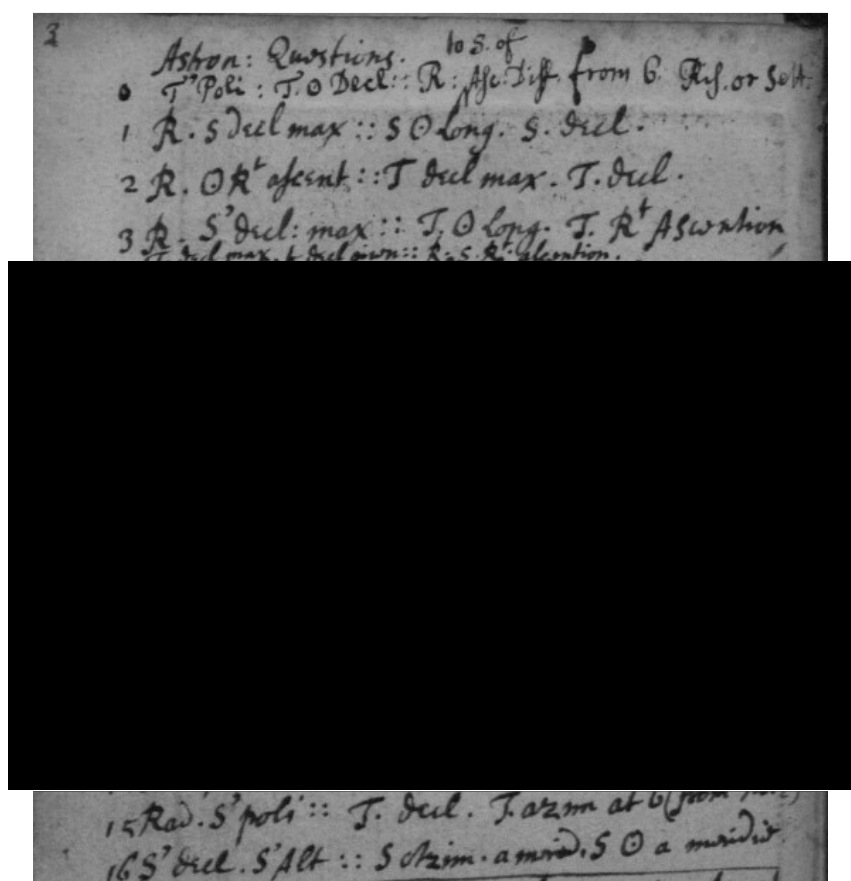 3
Astron: Questions. to S. of
0 T'Poli: T.☉ Decl:: R: Asc. Diff. from 6. Ris. or Sett.
1 R. S decl max :: S ☉ Long. S. decl.
2 R. ☉ Rᵗ ascent :: T decl max. T. decl.
3 R. S' decl: max :: T. ☉ Long. T. Rᵗ Ascention
T. decl max. t decl given :: R. S. Rᵗ ascention.
15 Rad. S' poli :: T. decl. T. azim at 6 (from
16 S' decl. S' Alt :: S Azim. a merid. S ☉ a meridie